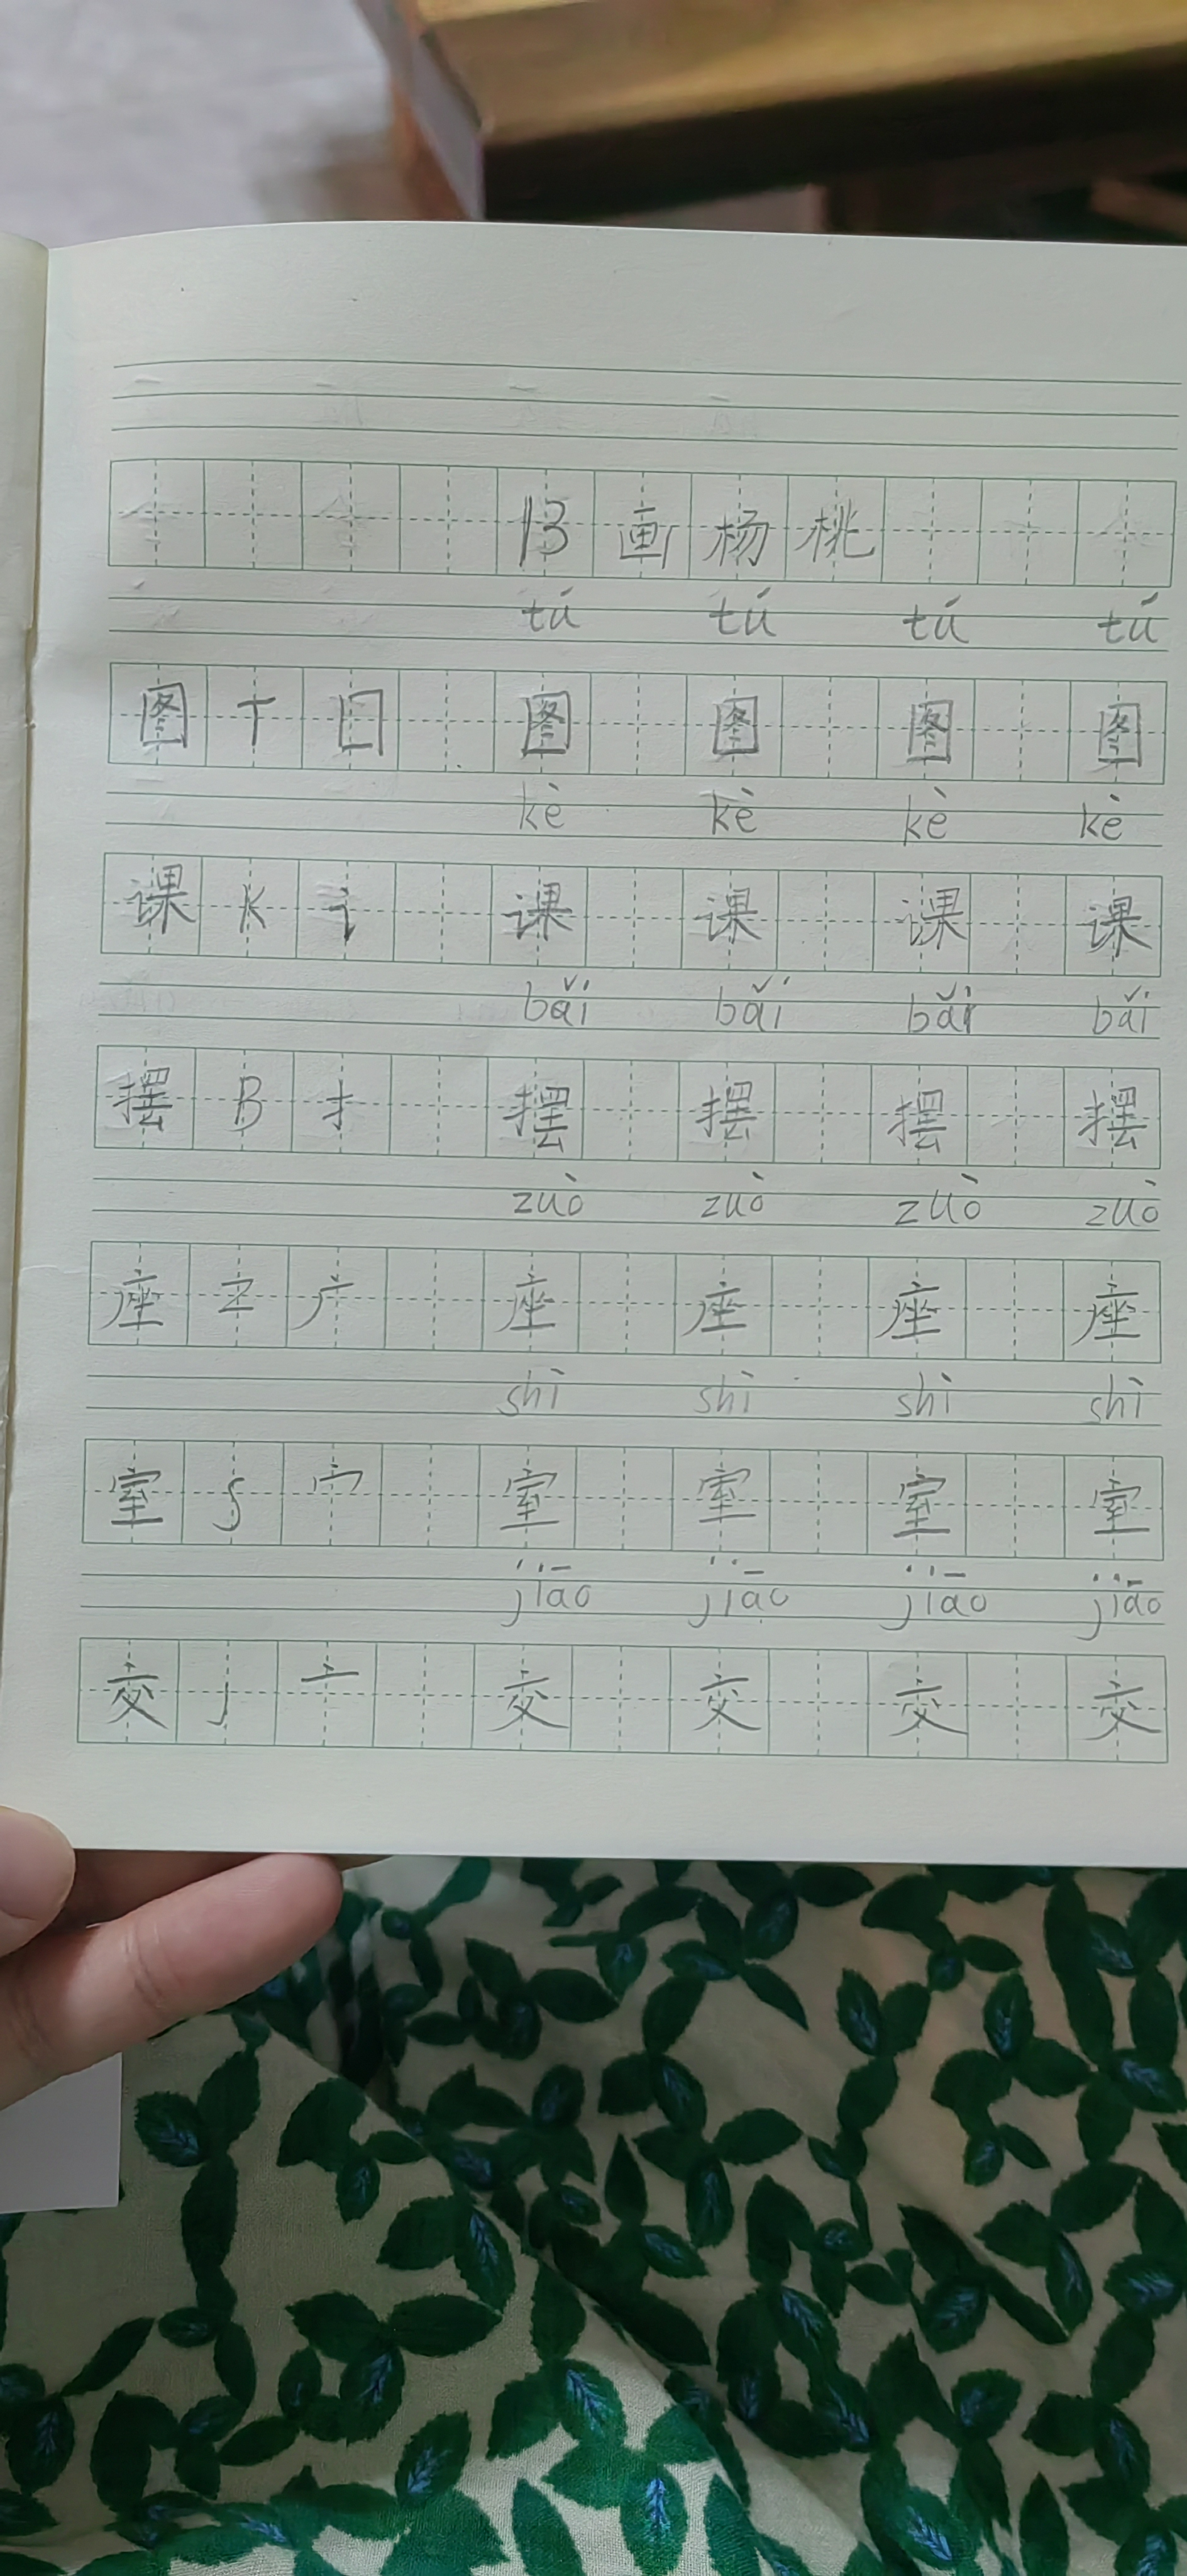 13画杨桃
tú tú tú tú
图 T 囗 图 图 图 图
kè kè kè kè
课 K 讠 课 课 课 课
bǎi bǎi bǎi bǎi
摆 B 扌 摆 摆 摆 摆
zuò zuò zuò zuò
座 Z 广 座 座 座 座
shì shì shì shì
室 S 宀 室 室 室 室
jiāo jiāo jiāo jiāo
交 J 亠 交 交 交 交